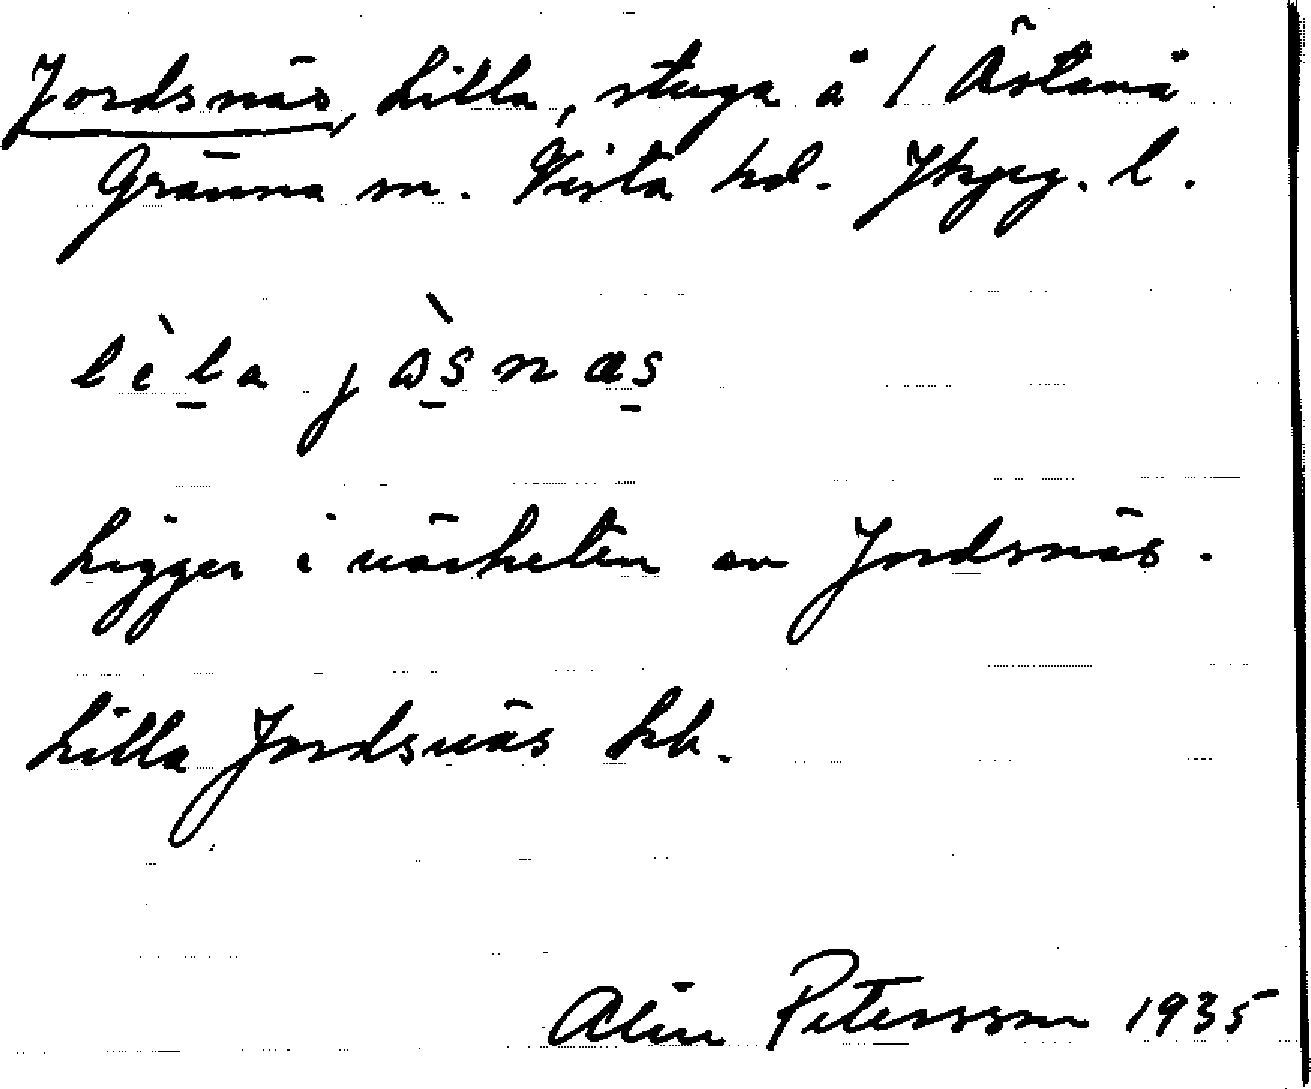 Jordsnäs, Lilla, stuga å 1 Östanå
Gränna sn. Vista hd. Jkpg. l.
lèla jòsnas
Ligger i närheten av Jordsnäs.
Lilla Jordsnäs hb.
Petersson 1935